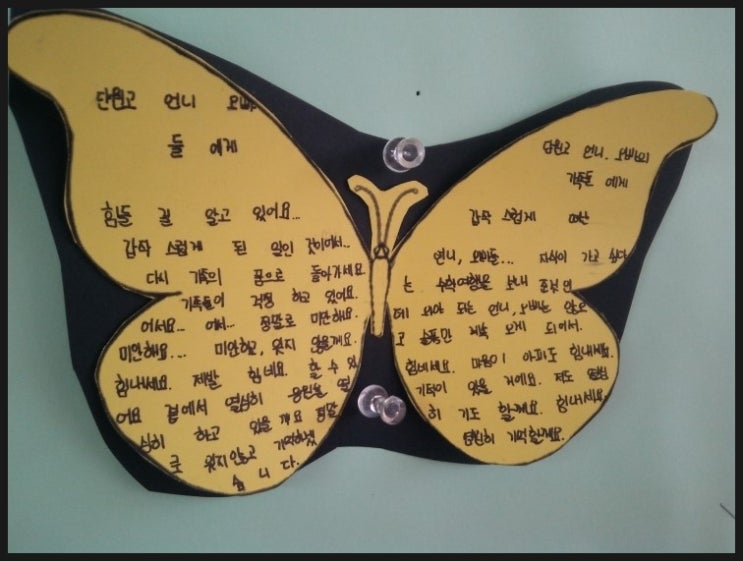 단원고 언니 오빠
들 에게
힘들 걸 알고 있어요...
갑작 스럽게 된 일인 것이에서..
다시 가족의 품으로 돌아가세요
가족들이 걱정 하고 있어요.
어서요... 어서... 정말로 미안해요.
미안해요... 미안하고, 잊지 않을게요.
힘내세요. 제발 힘내요. 할 수 있
어요 곁에서 열심히 응원을 열
심히 하고 있을 게요 정말
로 잊지않고 기억하겠
습니다.
단원고 언니, 오빠의
가족들 에게
갑작 스럽게 떠난
언니, 오빠들... 자식이 가고 싶다
는 수학여행을 보내 준
데 와야 되는 언니, 오빠는 않오
고 슬픔만 계속 오게 되어서.
힘내세요. 마음이 아파도 힘내세요.
기적이 있을 거에요. 저도 열심
히 기도 할게요. 힘내세요.
열심히 기억할게요.